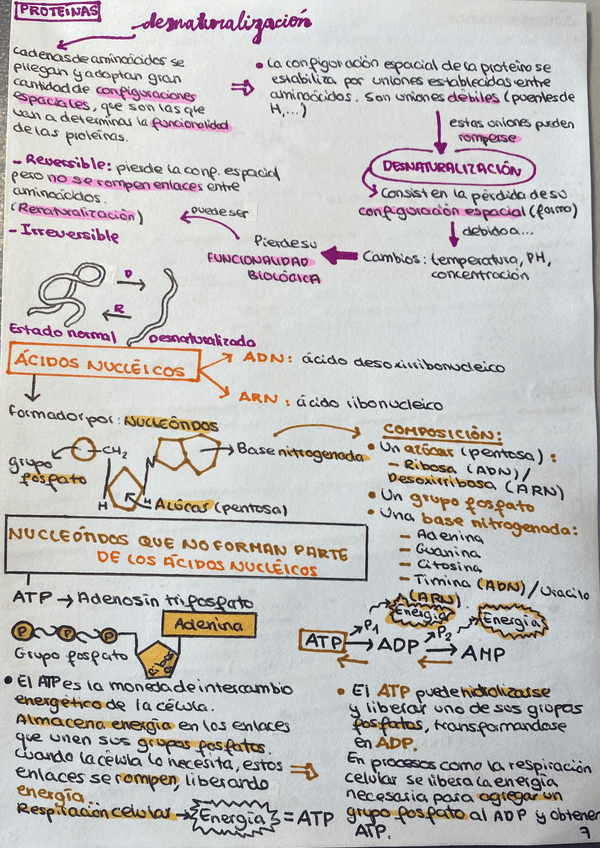 PROTEÍNAS
desnaturalización
cadenas de aminoácidos se
pliegan y adoptan gran
cantidad de configuraciones
espaciales, que son las que
van a determinar la funcionalidad
de las proteínas.
⇒ • La configuración espacial de la proteína se
estabiliza por uniones establecidas entre
aminoácidos. Son uniones débiles (puentes de
H,...)
estas uniones pueden
romperse
DESNATURALIZACIÓN
Consist en la pérdida de su
configuración espacial (forma)
debido a...
Cambios: temperatura, PH,
concentración
Pierde su
FUNCIONALIDAD
BIOLÓGICA
puede ser
- Reversible: pierde la conf. espacial
pero no se rompen enlaces entre
aminoácidos.
(Renaturalización)
- Irreversible
D
R
Estado normal
Desnaturalizada
ÁCIDOS NUCLÉICOS
→ ADN: ácido desoxirribonucleico
→ ARN: ácido ribonucleico
formador por: NUCLEÓTIDOS
grupo
fosfato
CH2
N
H
H
Base nitrogenada
Azúcar (pentosa)
COMPOSICIÓN:
• Un azúcar (pentosa):
- Ribosa (ADN)/
Desoxirribosa (ARN)
• Un grupo fosfato
• Una base nitrogenada:
- Adenina
- Guanina
- Citosina
- Timina (ADN)/Uracilo
(ARN)
NUCLEÓTIDOS QUE NO FORMAN PARTE
DE LOS ÁCIDOS NUCLÉICOS
ATP → Adenosin trifosfato
P P P
Adenina
Grupo fosfato
Ribosa
Energía
Energía
P1
P2
ATP → ADP → AMP
• El ATP es la moneda de intercambio
energético de la célula.
Almacena energía en los enlaces
que unen sus grupos fosfatos.
Cuando la célula lo necesita, estos
enlaces se rompen, liberando
energía...
Respiración celular → Energía = ATP
⇒ • El ATP puede hidrolizarse
y liberar uno de sus grupos
fosfatos, transformandose
en ADP.
En procesos como la respiración
celular se libera la energía
necesaria para agregar un
grupo fosfato al ADP y obtener
ATP.
7